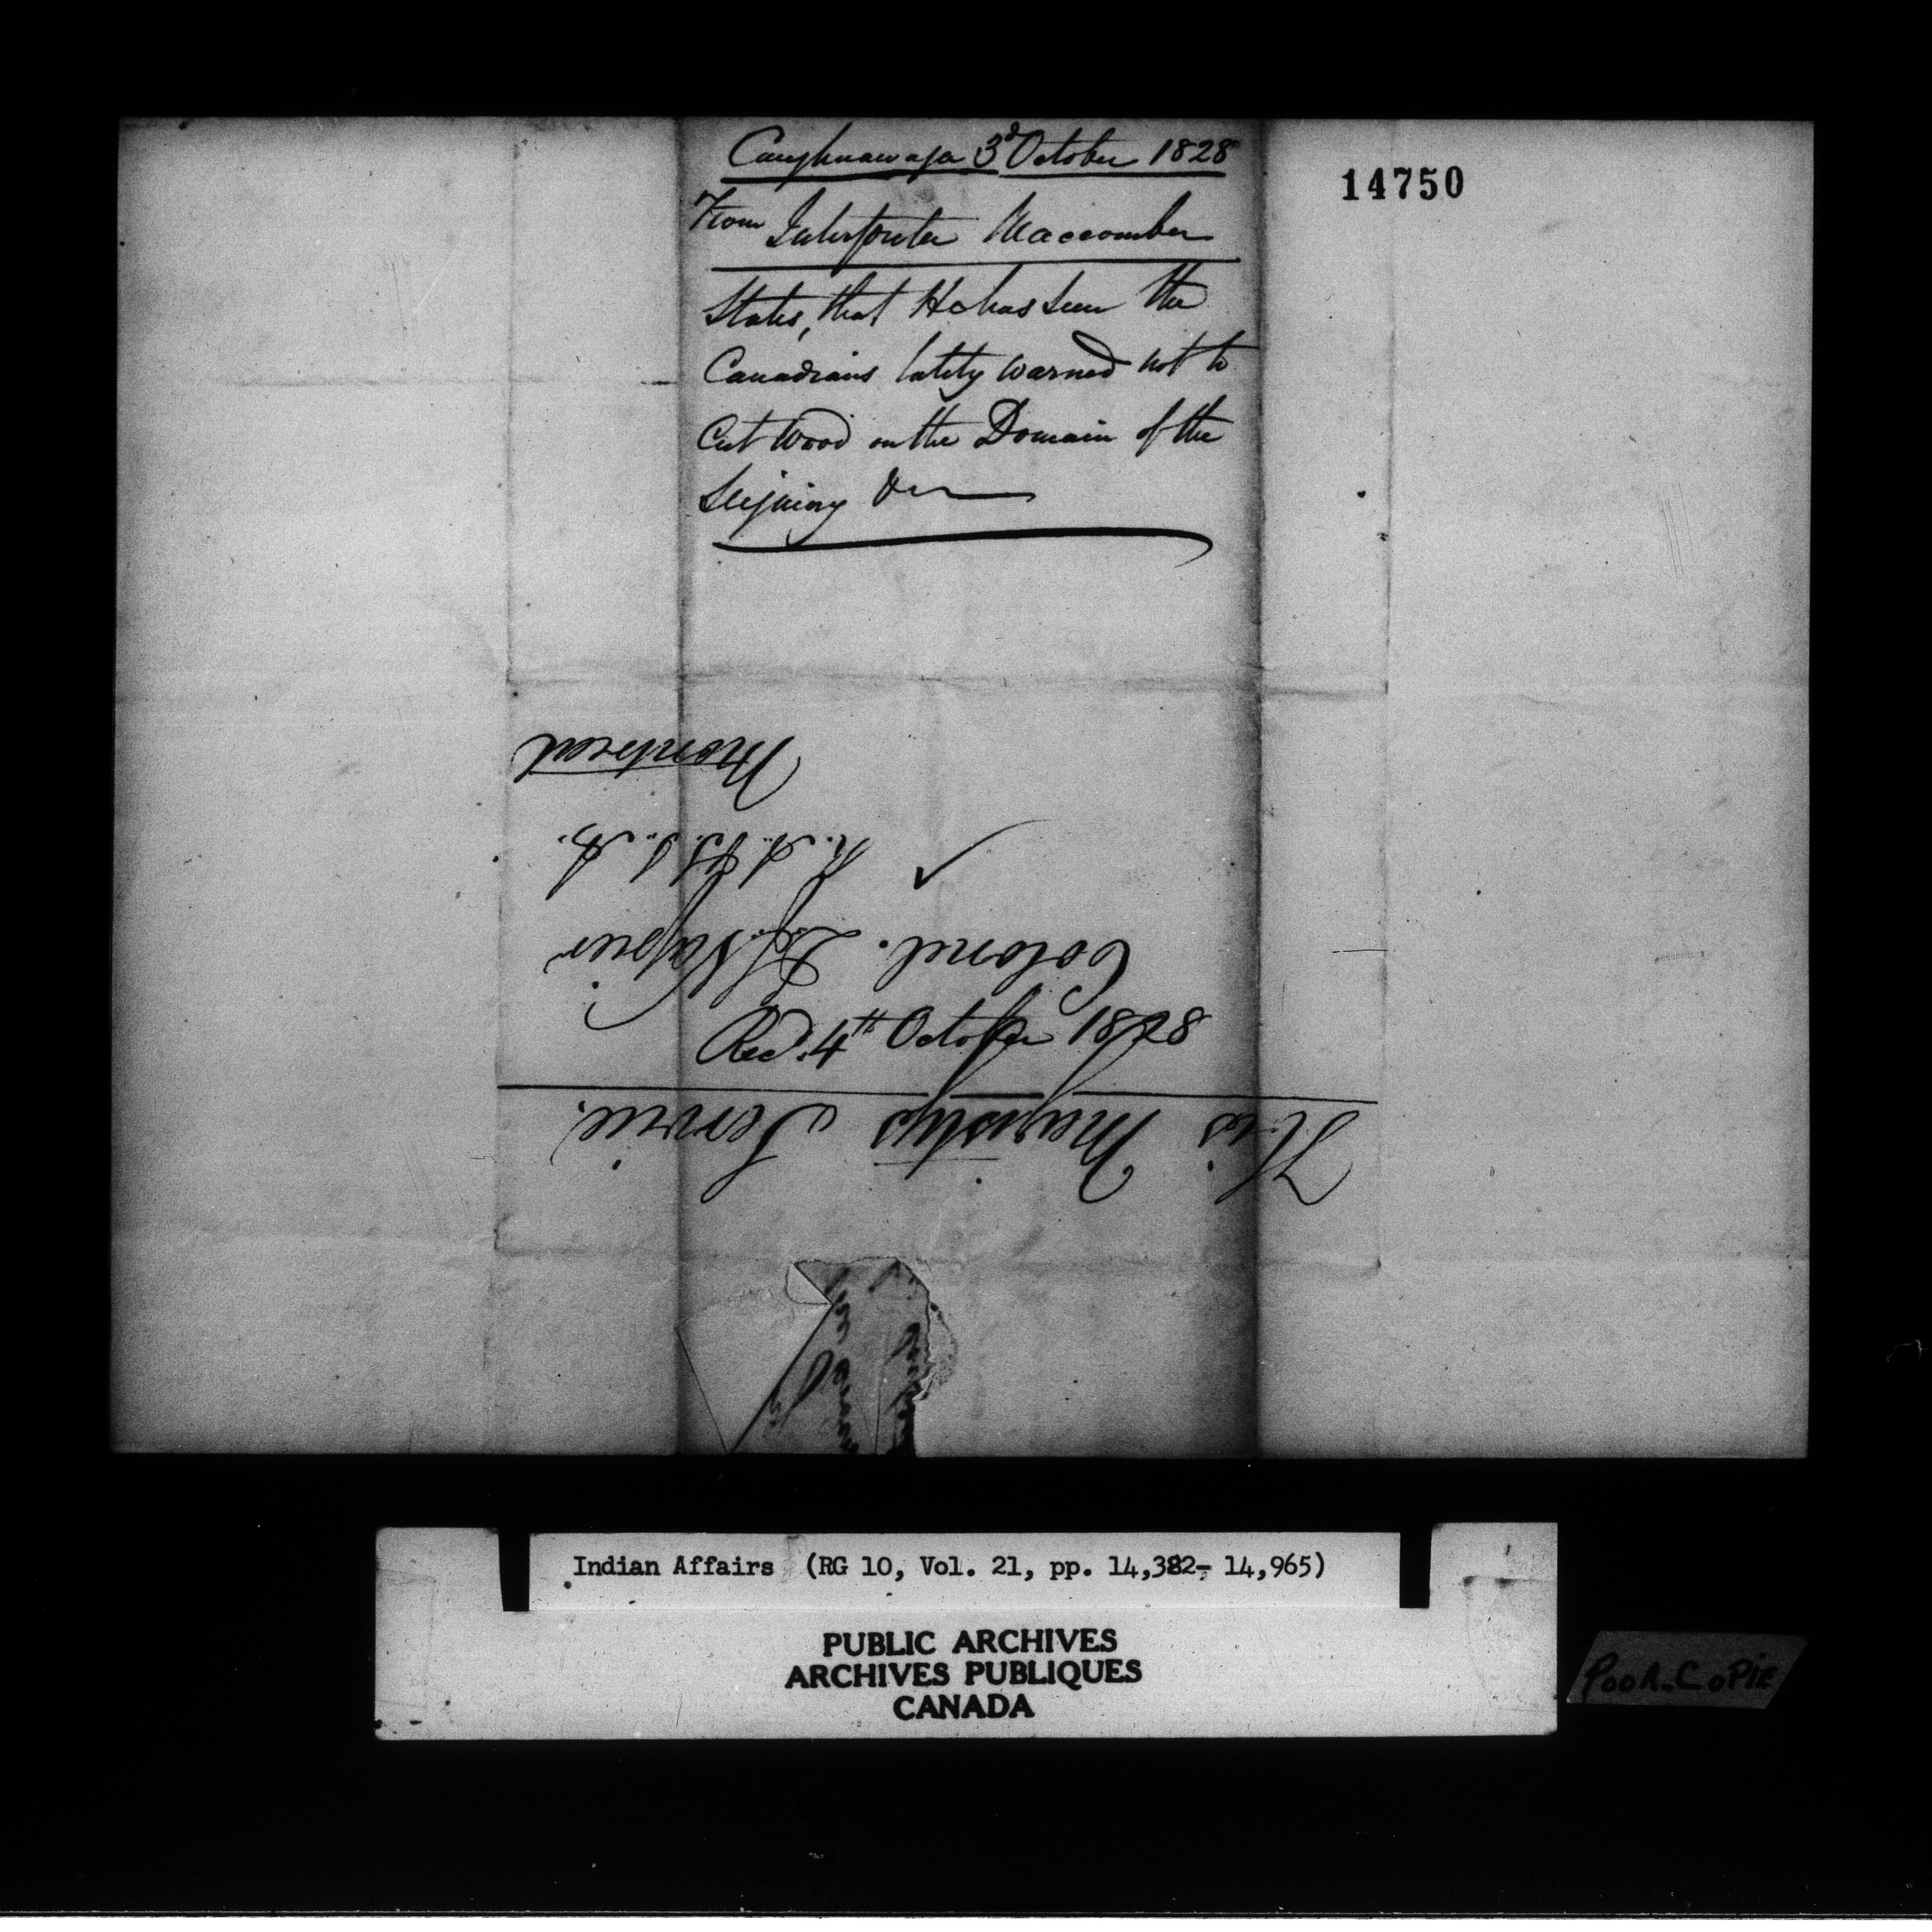 Caughnawaga 3d October 1828
14750
From Interpreter Maccomber
States, that He has seen the
Canadians lately warned not to
Cut Wood on the Domain of the
Seigniory &c
His Majestys Service.
Recd. 4th October 1828
Colonel. Napier
Montreal
Indian Affairs (RG 10, Vol. 21, pp. 14,382- 14,965)
PUBLIC ARCHIVES
ARCHIVES PUBLIQUES
CANADA
POOR_COPIE